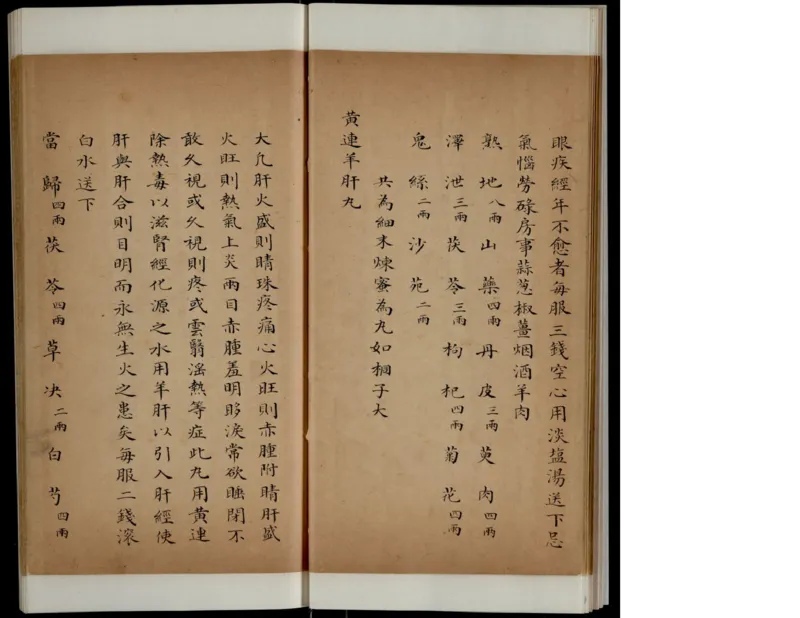 眼疾經年不愈者每服三錢空心用淡塩湯送下忌
氣惱勞碌房事蒜葱椒薑烟酒羊肉
熟地八兩山藥四兩丹皮三兩萸肉四兩
澤泄三兩茯苓三兩枸杞四兩菊花四兩
鬼絲二兩沙苑二兩
共為細末煉蜜為丸如桐子大
黃連羊肝丸
大凡肝火盛則睛珠疼痛心火旺則赤腫附睛肝盛
火旺則熱氣上炎兩目赤腫羞明眵淚常欲睡閉不
敢久視或久視則疼或雲翳滛熱等症此丸用黃連
除熱毒以滋腎經化源之水用羊肝以引入肝經使
肝與肝合則目明而永無生火之患矣每服二錢滚
白水送下
當歸四兩茯苓四兩草决二兩白芍四兩